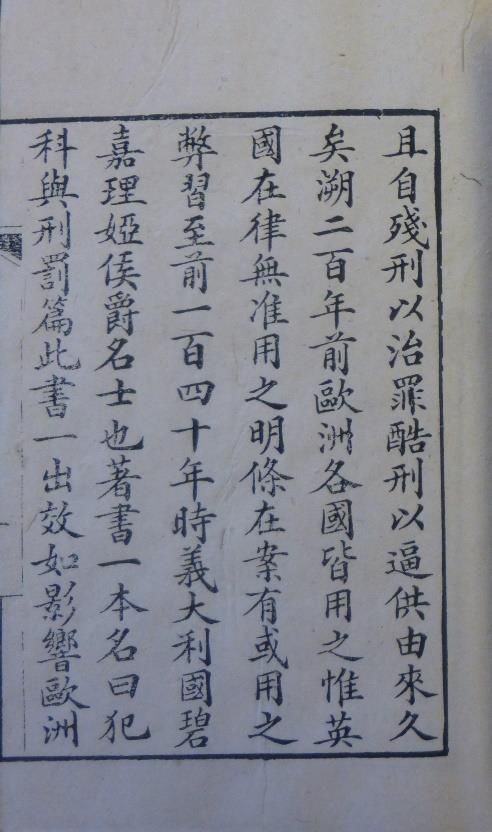 且自殘刑以治罪酷刑以逼供由來久
矣溯二百年前歐洲各國皆用之惟英
國在律無准用之明條在案有或用之
弊習至前一百四十年時義大利國碧
嘉理婭侯爵名士也著書一本名曰犯
科與刑罰篇此書一出效如影響歐洲